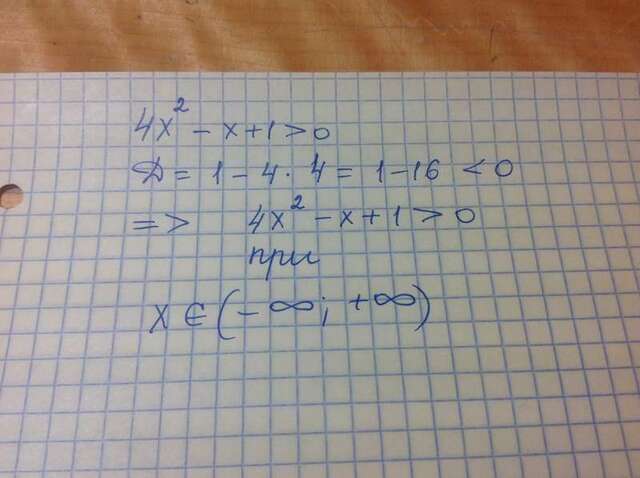 4x² - x + 1 > 0
Д = 1 - 4 · 4 = 1 - 16 < 0
=> 4x² - x + 1 > 0
при
x ∈ (-∞; +∞)